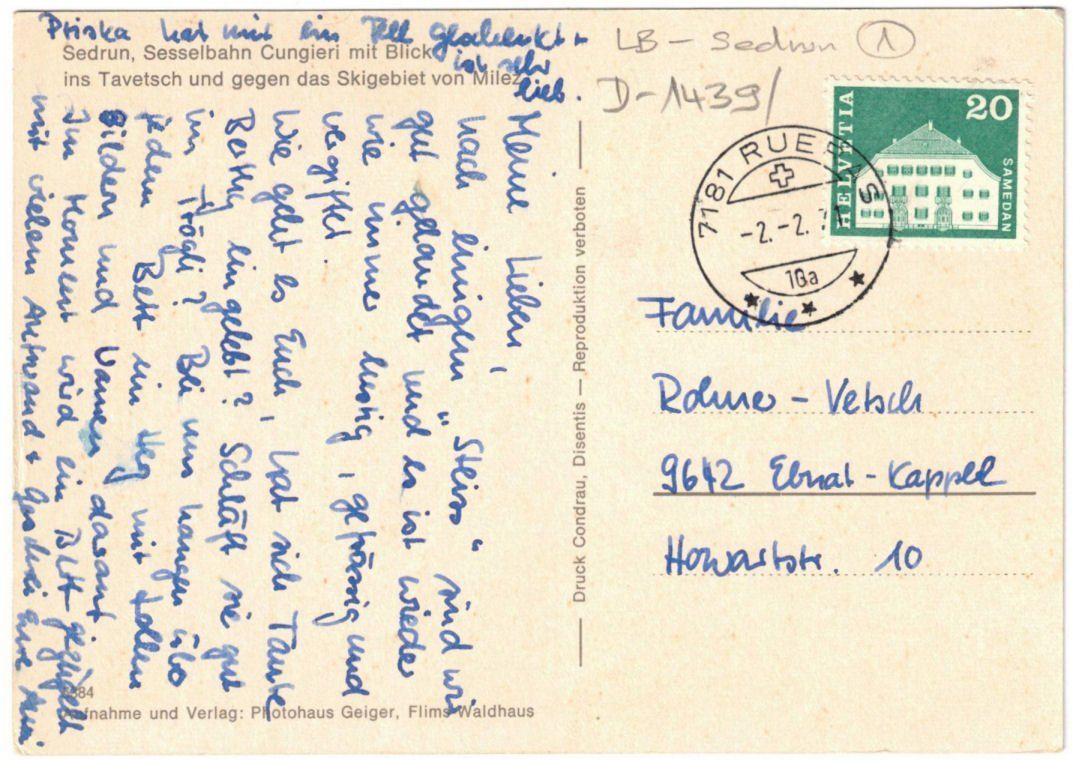 Priska hat mir ein Fell geschenkt +
ist sehr
lieb.
Sedrun, Sesselbahn Cungieri mit Blick
ins Tavetsch und gegen das Skigebiet von Milez
Meine Lieben,
nach einigen "Steiss" sind wir
gut gelandet und es ist wieder
wie immer lustig, gefrässig und
vergiftet.
Wie geht es Euch, hat sich Tante
Betty eingelebt? Schläft sie gut
im Trögli? Bei uns hangen über
jedem Bett ein Heg mit tollen
Bildern und Namen darauf.
Im Moment wird ein
mit vielem Aufwand +
584
Aufnahme und Verlag: Photohaus Geiger, Flims-Waldhaus
Druck Condrau, Disentis — Reproduktion verboten
LB - Sedrun 1
D-1439/
HELVETIA
20
SAMEDAN
7181 RUERAS
-2.-2.71
10a
Familie
Rohner - Vetsch
9642 Ebnat-Kappel
Howartstr. 10